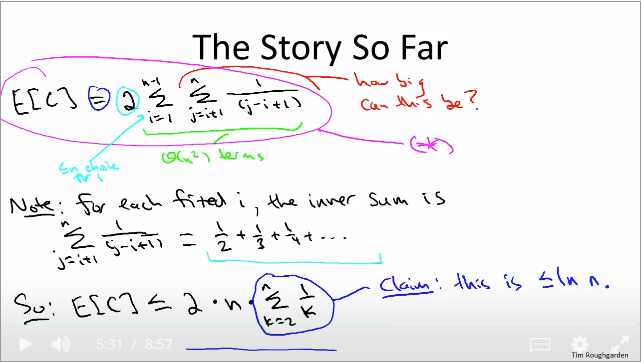 The Story So Far
E[C] = 2 ∑_{i=1}^{n-1} ∑_{j=i+1}^{n} 1/(j-i+1)
how big
can this be?
≤n choices
for i
Θ(n²) terms
(*)
Note: for each fixed i, the inner sum is
∑_{j=i+1}^{n} 1/(j-i+1) = 1/2 + 1/3 + 1/4 + ...
So: E[C] ≤ 2 · n · ∑_{k=2}^{n} 1/k
Claim: this is ≤ ln n.
5:31 / 8:57
Tim Roughgarden